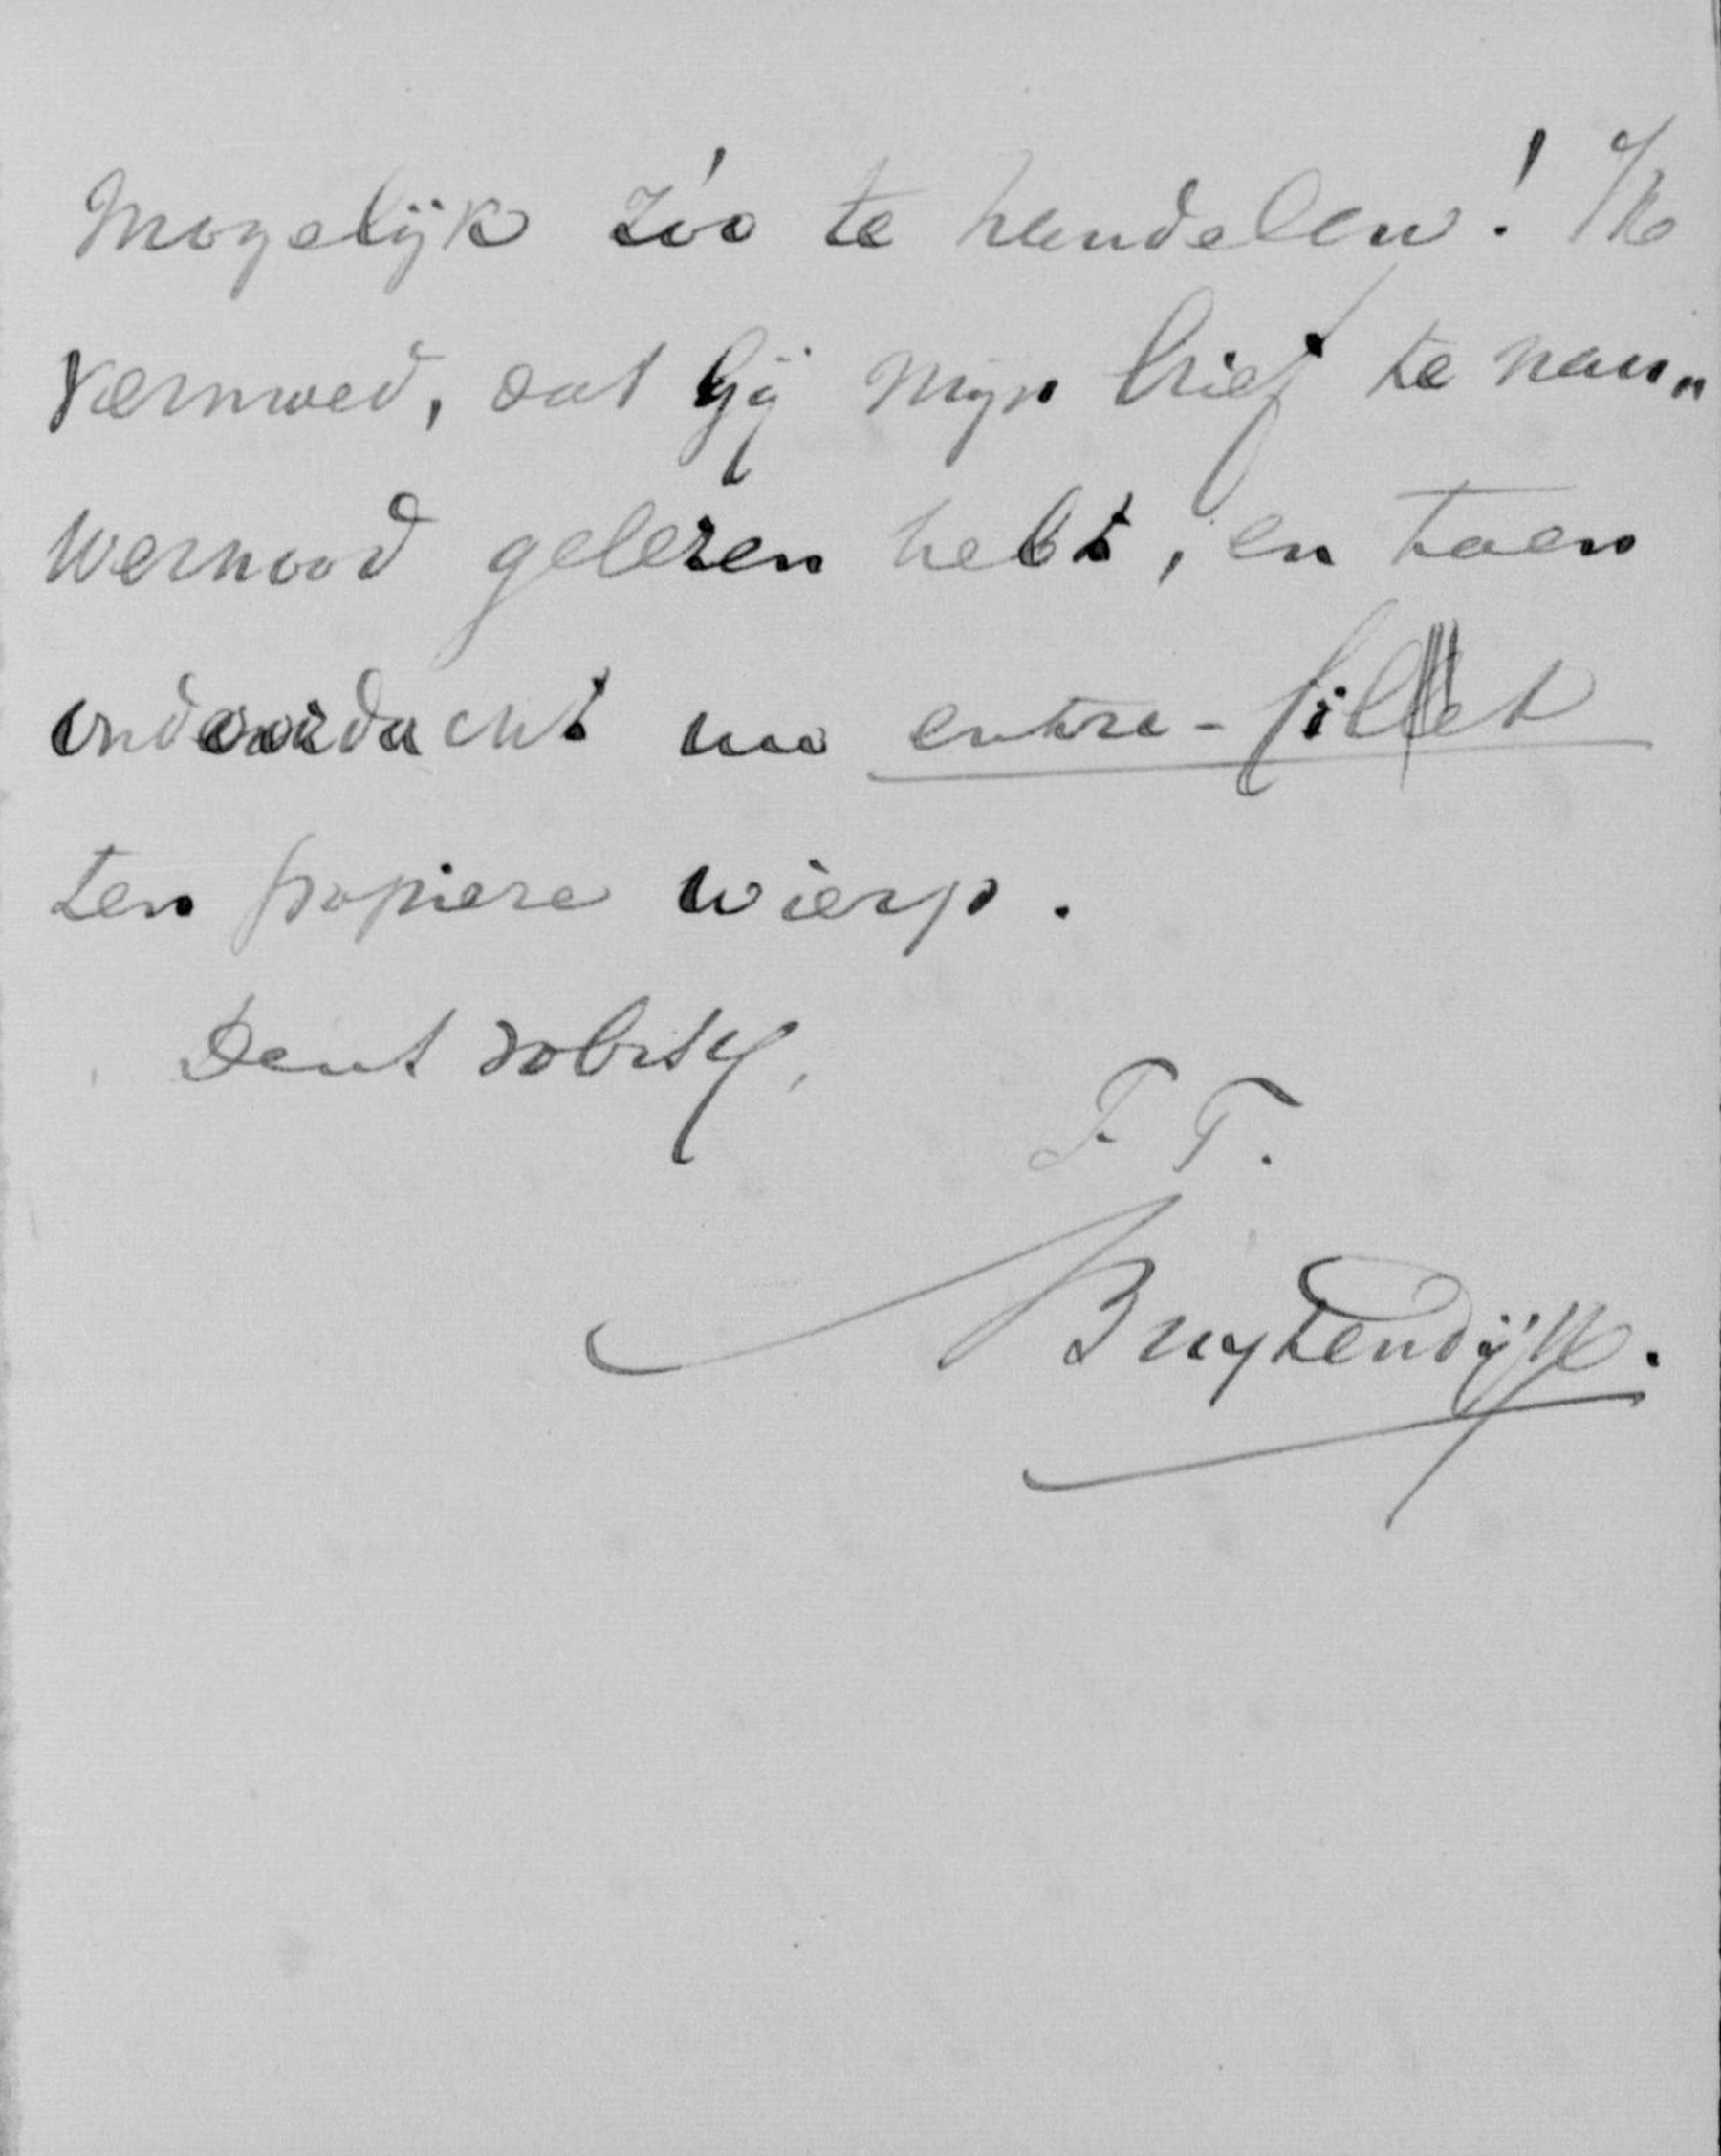 mogelijk zóo te handelen! Ik
vermoed, dat Gij mijn brief te nau„
wernood gelezen hebt, en toen
ondoordacht uw entre-fillet
ten papiere wierp.
Denk
F. T.
Buytendijk.